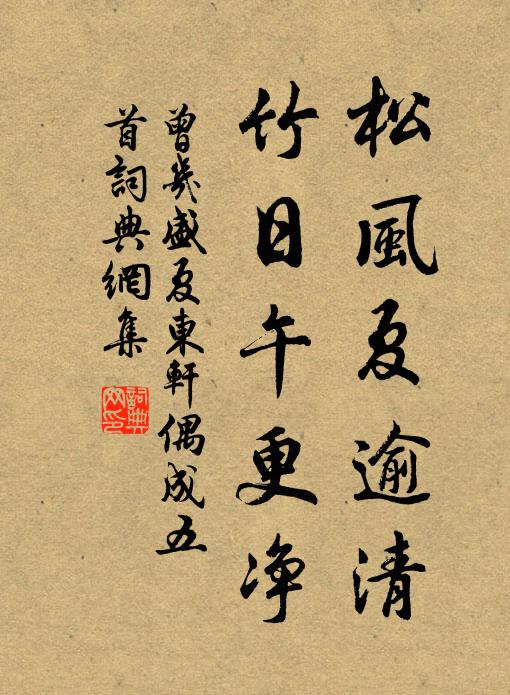 松風夏逾清
竹日午更净
曾幾盛夏東軒偶成五
首詞典網集
詞典網印